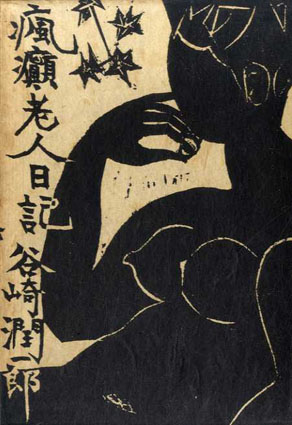 瘋癲老人日記 谷崎潤一郎